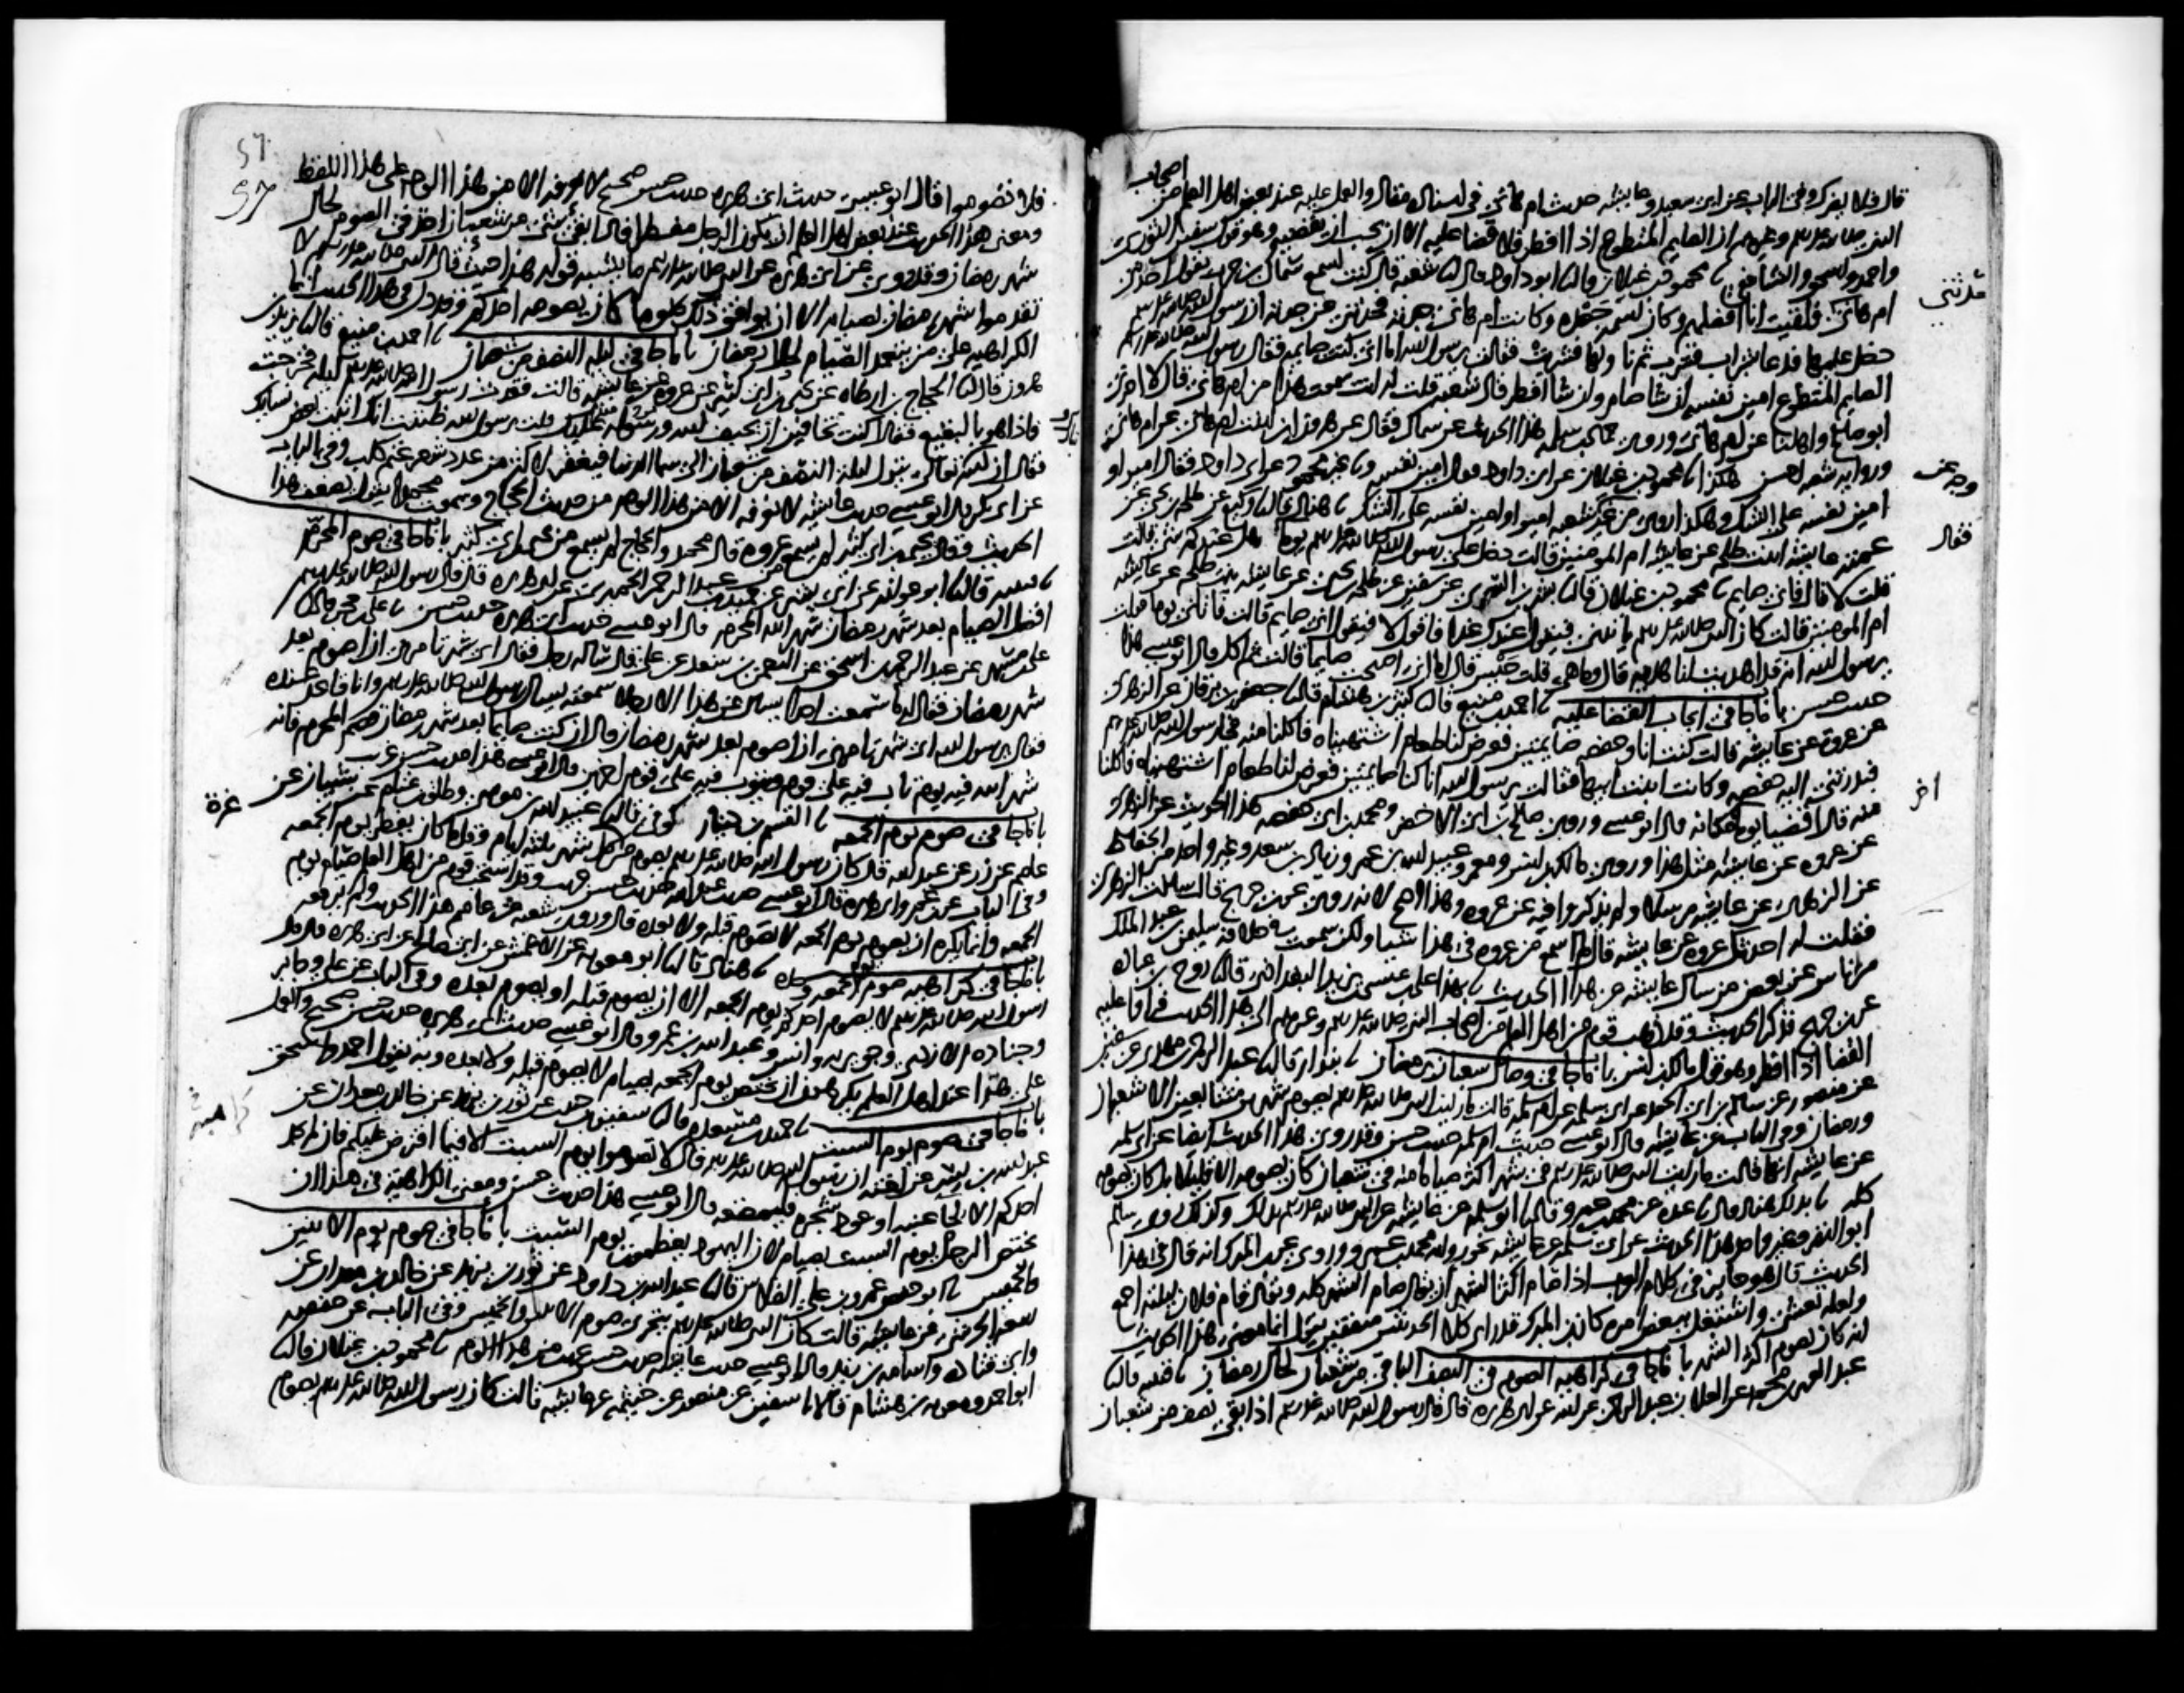 قال فلا يضرك وفي الباب عن ابي سعيد وعايشه حديث ام هاني في اسناده مقال والعمل عليه عند بعض اهل العلم من اصحاب
النبي صلى الله عليه وسلم وغيرهم ان الصايم المتطوع اذا افطر فلا قضا عليه الا ان يحب ان يقضيه وهو قول سفين الثوري
واحمد واسحق والشافعي محمود بن غيلان قال ابو داود قال شعبة قال كنت اسمع سماك بن حرب يقول احد بني
ام هاني فلقيت انا افضلهم وكان اسمه جعده وكانت ام هاني جدته فحدثني عن جدته ان رسول الله صلى الله عليه وسلم
دخل عليها فدعا بشراب فشرب ثم ناولها فشربت فقالت يرسول الله اما اني كنت صايمه فقال رسول الله صلى الله عليه وسلم
الصايم المتطوع امين نفسه ان شا صام وان شا افطر قال شعبه قلت له انت سمعت هذا من ام هاني قال لا اخبرني
ابو صالح واهلنا عن ام هاني وروى حماد بن سلمه هذا الحديث عن سماك فقال عن هرون ابن بنت ام هاني عن ام هاني
وروايه شعبه احسن هكذا محمود بن غيلان عن ابي داود فقال امين نفسه و غير محمود عن ابي داود فقال امير او
امين نفسه على الشك وهكذا روي من غير وجه عن شعبه امير او امين نفسه على الشك هناد قال وكيع عن طلحه بن يحيى عن
عمته عايشه ابنت طلحه عن عايشه ام المومنين قالت دخل علي رسول الله صلى الله عليه وسلم يوما فقال هل عندكم شي قالت
قلت لا قال فاني صايم محمود بن غيلان قال بشر بن السري عن سفين عن طلحه بن يحيى عن عايشه بنت طلحه عن عايشه
ام المومنين قالت كان النبي صلى الله عليه وسلم ياتيني فيقول اعندك غدا فاقول لا فيقول اني صايم قالت فاتاني يوما فقلت
يرسول الله انه قد اهديت لنا هديه قال وما هي قلت حيس قال اما اني اصبحت صايما قالت ثم اكل قال ابو عيسى هذا
حديث حسن باب ما جا في ايجاب القضا عليه احمد بن منيع قال كثير بن هشام قال جعفر بن برقان عن الزهري
عن عروة عن عايشه قالت كنت انا وحفصه صايمتين فعرض لنا طعام اشتهيناه فاكلنا منه فجا رسول الله صلى الله عليه وسلم
فبدرتني اليه حفصه وكانت ابنت ابيها فقالت يرسول الله انا كنا صايمتين فعرض لنا طعام اشتهيناه فاكلنا
منه قال اقضيا يوما اخر مكانه قال ابو عيسى وروى صالح بن ابي الاخضر ومحمد بن ابي حفصه هذا الحديث عن الزهري
عن عروه عن عايشه مثل هذا وروى مالك بن انس ومعمر وعبيد الله بن عمر وزياد بن سعد وغير واحد من الحفاظ
عن الزهري عن عايشه مرسلا ولم يذكروا فيه عن عروه وهذا اصح لانه روي عن ابن جريج قال سالت الزهري
فقلت له احدثك عروه عن عايشه قال لم اسمع من عروه في هذا شيا ولكن سمعت في خلافه سليمن بن عبد الملك
من ناس عن بعض من سال عايشه عن هذا الحديث بهذا علي بن عيسى بن يزيد البغدادي قال روح بن عباده
عن ابن جريج فذكر الحديث وقد ذهب قوم من اهل العلم من اصحاب النبي صلى الله عليه وسلم وغيرهم الى هذا الحديث فراوا عليه
القضا اذا افطر وهو قول مالك بن انس باب ما جا في وصال شعبان برمضان بندار قال عبد الرحمن بن مهدي عن سفين
عن منصور عن سالم بن ابي الجعد عن ابي سلمه عن ام سلمه قالت ما رايت النبي صلى الله عليه وسلم يصوم شهرين متتابعين الا شعبان
ورمضان وفي الباب عن عايشه قال ابو عيسى حديث ام سلمه حديث حسن وقد روي هذا الحديث ايضا عن ابي سلمه
عن عايشه انها قالت ما رايت النبي صلى الله عليه وسلم في شهر اكثر صياما منه في شعبان كان يصومه الا قليلا بل كان يصومه
كله بذلك هناد قال عبده عن محمد بن عمرو قال ابو سلمه عن عايشه عن النبي صلى الله عليه وسلم بذلك وكذلك روى سالم
ابو النضر وغير واحد هذا الحديث عن ابي سلمه عن عايشه نحو روايه محمد بن عمرو وروي عن ابن المبرك انه قال في هذا
الحديث قال هو جايز في كلام العرب اذا صام اكثر الشهر ان يقال صام الشهر كله ويقال قام فلان ليلته اجمع
ولعله تعشى واشتغل ببعض امره كان ابن المبرك قد راى كلا الحديثين متفقين يقول انما معنى هذا الحديث
انه كان يصوم اكثر الشهر باب ما جا في كراهيه الصوم في النصف الباقي من شعبان لحال رمضان قتيبه قال
عبد العزيز بن محمد عن العلا بن عبد الرحمن عن ابيه عن ابي هريره قال قال رسول الله صلى الله عليه وسلم اذا بقي نصف من شعبان
حدثني
وجه عن
فقال
اخر
57
فلا تصوموا قال ابو عيسى حديث ابي هريره حديث حسن صحيح لا نعرفه الا من هذا الوجه على هذا اللفظ
ومعنى هذا الحديث عند بعض اهل العلم ان يكون الرجل مفطرا فاذا بقي شي من شعبان اخذ في الصوم لحال
شهر رمضان وقد روي عن ابي هريره عن النبي صلى الله عليه وسلم ما يشبه قوله هذا حيث قال النبي صلى الله عليه وسلم لا
تقدموا شهر رمضان بصيام الا ان يوافق ذلك صوما كان يصومه احدكم وقد دل في هذا الحديث انما
الكراهيه على من يتعمد الصيام لحال رمضان باب ما جا في ليله النصف من شعبان احمد بن منيع قال يزيد بن
هرون قال الحجاج بن ارطاه عن يحيى بن ابي كثير عن عروه عن عايشه قالت فقدت رسول الله صلى الله عليه وسلم ليله فخرجت
فاذا هو بالبقيع فقال اكنت تخافين ان يحيف الله ورسوله عليك قلت يرسول الله ظننت انك اتيت بعض نسايك
فقال ان الله تعالى ينزل ليله النصف من شعبان الى سما الدنيا فيغفر لاكثر من عدد شعر غنم كلب وفي الباب
عن ابي بكر قال ابو عيسى حديث عايشه لا نعرفه الا من هذا الوجه من حديث الحجاج وسمعت محمدا يقول يضعف هذا
الحديث وقال يحيى بن ابي كثير لم يسمع من عروه قال محمد والحجاج لم يسمع من يحيى بن ابي كثير باب ما جا في صوم المحرم
قتيبه قال ابو عوانه عن ابي بشر عن حميد بن عبد الرحمن الحميري عن ابي هريره قال قال رسول الله صلى الله عليه وسلم
افضل الصيام بعد شهر رمضان شهر الله المحرم قال ابو عيسى حديث ابي هريره حديث حسن علي بن حجر قال
علي بن مسهر عن عبد الرحمن بن اسحق عن النعمن بن سعد عن علي قال ساله رجل فقال اي شهر تامرني ان اصوم بعد
شهر رمضان فقال له ما سمعت احدا يسال عن هذا الا رجلا سمعته يسال رسول الله صلى الله عليه وسلم وانا قاعد عنده
فقال يرسول الله اي شهر تامرني ان اصوم بعد شهر رمضان قال ان كنت صايما بعد شهر رمضان فصم المحرم فانه
شهر الله فيه يوم تاب فيه على قوم ويتوب فيه على قوم اخرين قال ابو عيسى هذا حديث حسن غريب
باب ما جا في صوم يوم الجمعه القسم بن دينار كوفي قال عبيد الله بن موسى وطلق بن غنام عن شيبان عن
عاصم عن زر عن عبد الله قال كان رسول الله صلى الله عليه وسلم يصوم من كل شهر ثلثه ايام وقل ما كان يفطر يوم الجمعه
وفي الباب عن ابن عمر وابي هريره قال ابو عيسى حديث عبد الله حديث حسن غريب وقد استحب قوم من اهل العلم صيام يوم
الجمعه وانما يكره ان يصوم يوم الجمعه لا يصوم قبله ولا بعده قال وروى شعبه عن عاصم هذا الحديث ولم يرفعه
باب ما جا في كراهيه صوم يوم الجمعه وحده هناد قال ابو معويه عن الاعمش عن ابي صالح عن ابي هريره قال قال
رسول الله صلى الله عليه وسلم لا يصوم احدكم يوم الجمعه الا ان يصوم قبله او يصوم بعده وفي الباب عن علي وجابر
وجناده الازدي وجويريه وانس وعبد الله بن عمرو قال ابو عيسى حديث ابي هريره حديث حسن صحيح والعمل
على هذا عند اهل العلم يكرهون ان يختص يوم الجمعه بصيام لا يصوم قبله ولا بعده وبه يقول احمد واسحق
باب ما جا في صوم يوم السبت حميد بن مسعده قال سفين بن حبيب عن ثور بن يزيد عن خالد بن معدان عن
عبد الله بن بسر عن اخته ان رسول الله صلى الله عليه وسلم قال لا تصوموا يوم السبت الا فيما افترض عليكم فان لم يجد
احدكم الا لحا عنبه او عود شجره فليمضغه قال ابو عيسى هذا حديث حسن ومعنى الكراهيه في هذا ان
يختص الرجل يوم السبت بصيام لان اليهود يعظمون يوم السبت باب ما جا في صوم يوم الاثنين
والخميس ابو حفص عمرو بن علي الفلاس قال عبد الله بن داود عن ثور بن يزيد عن خالد بن معدان عن
ربيعه الجرشي عن عايشه قالت كان النبي صلى الله عليه وسلم يتحرى صوم الاثنين والخميس وفي الباب عن حفصه
وابي قتاده واسامه بن زيد قال ابو عيسى حديث عايشه حديث حسن غريب من هذا الوجه محمود بن غيلان قال
ابو احمد ومعويه بن هشام قالا سفين عن منصور عن خيثمه عن عايشه قالت كان رسول الله صلى الله عليه وسلم يصوم
غرة
كراهية